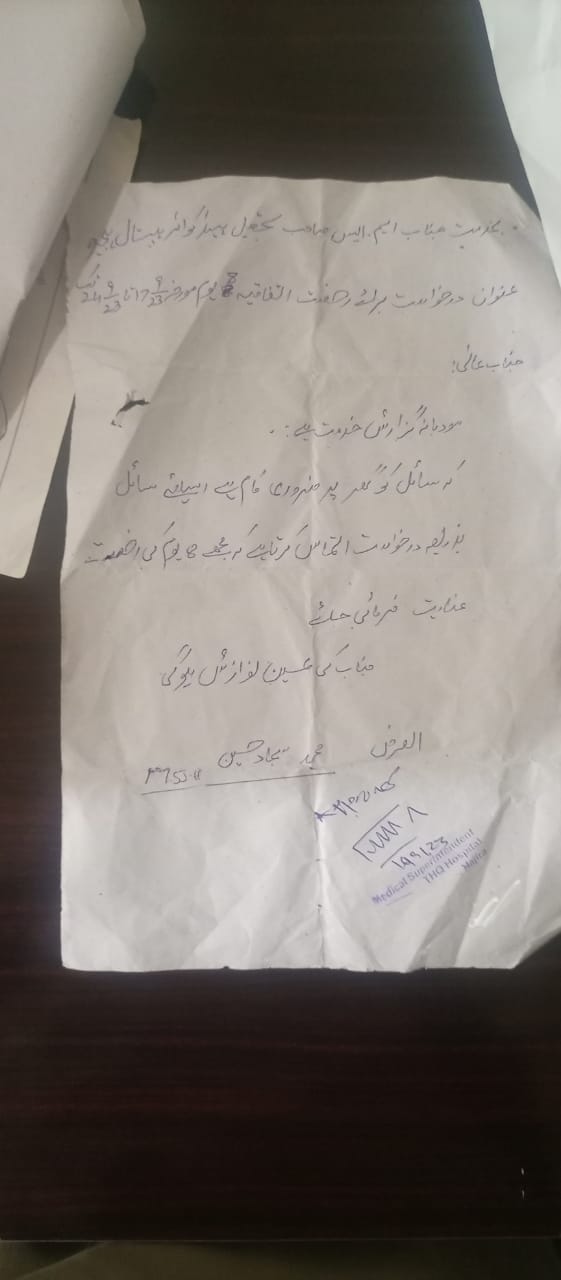 بخدمت جناب ایم.ایس صاحب تحصیل ہیڈ کوارٹر ہسپتال
عنوان درخواست برائے رخصت اتفاقیہ 8 یوم مورخہ 17 9/23 تا 24 9/23 تک
جناب عالی!
مودبانہ گزارش خدمت ہے:.
کہ سائل کو گھر پر ضروری کام ہے اسلئے سائل
بذریعہ درخواست التماس کرتا ہے کہ مجھے یوم کی رخصت
عنایت فرمائی جائے
جناب کی عین نوازش ہوگی
العرض محمد سجاد حسین
Medical Superintendent
THQ Hospital